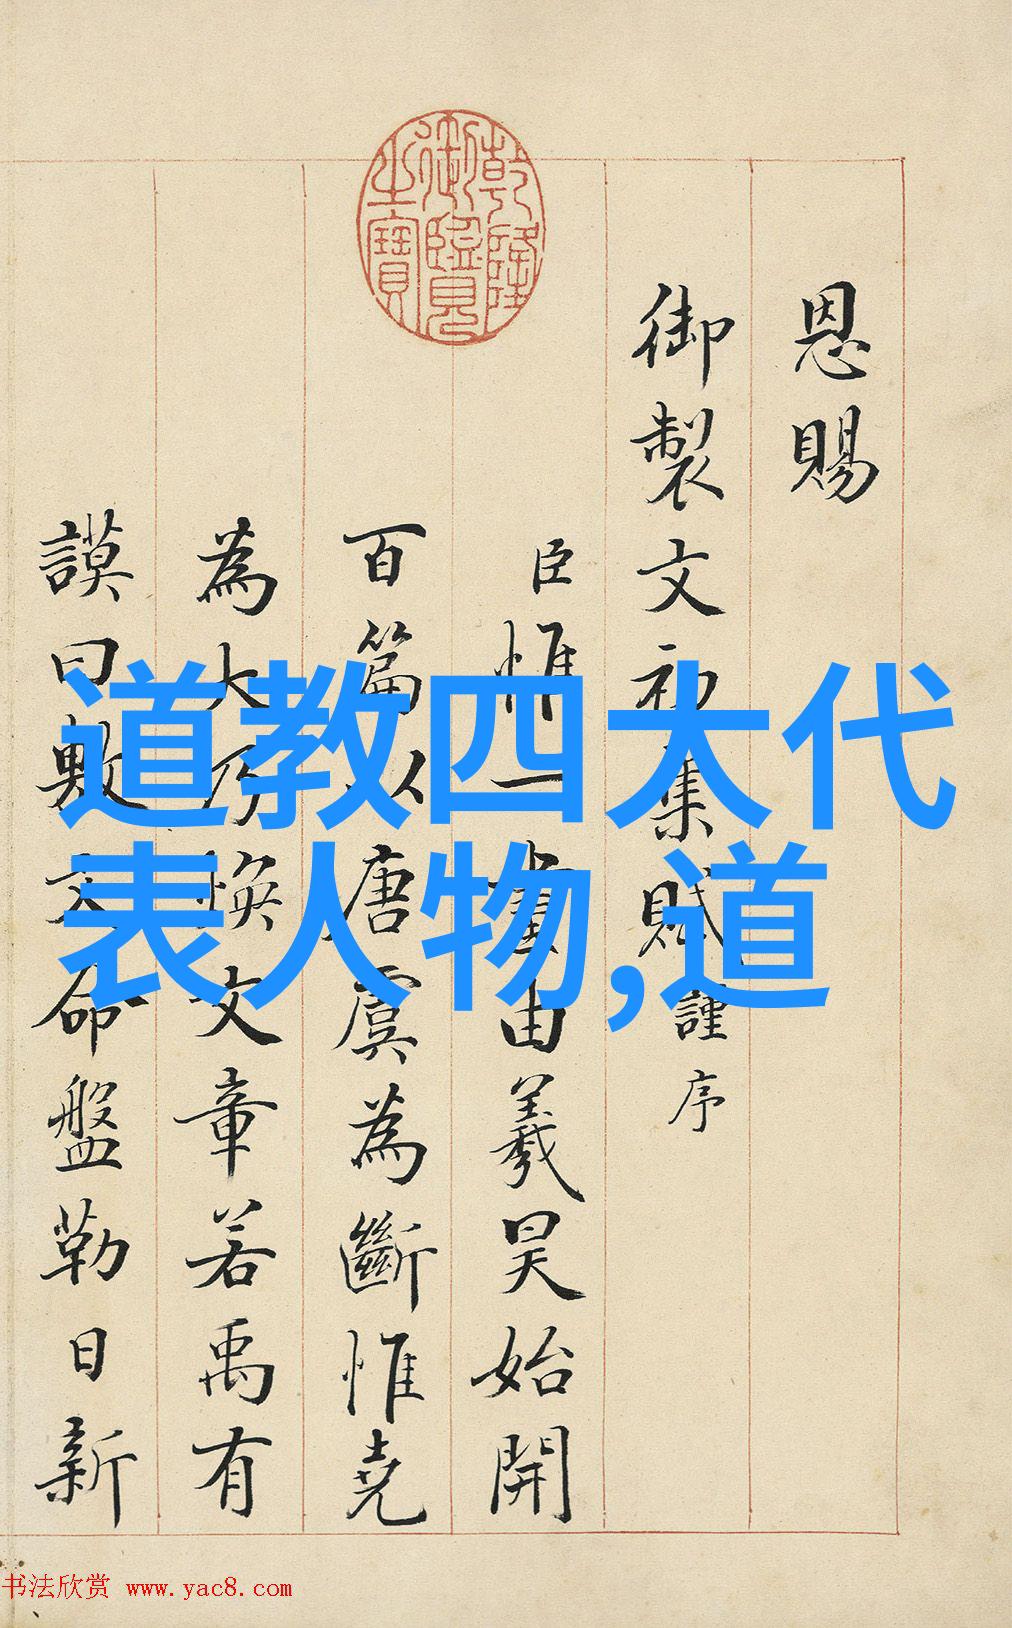 乾隆
御覽
之寶
恩賜
御製文初集賦謹序
臣惟一畫由羲昊始開
百篇以唐虞為斷惟堯
為大乃煥文章若禹有
謨曰敷文命盤勒日新
道教四大代
表人物,道
书法欣赏 www.yac8.com